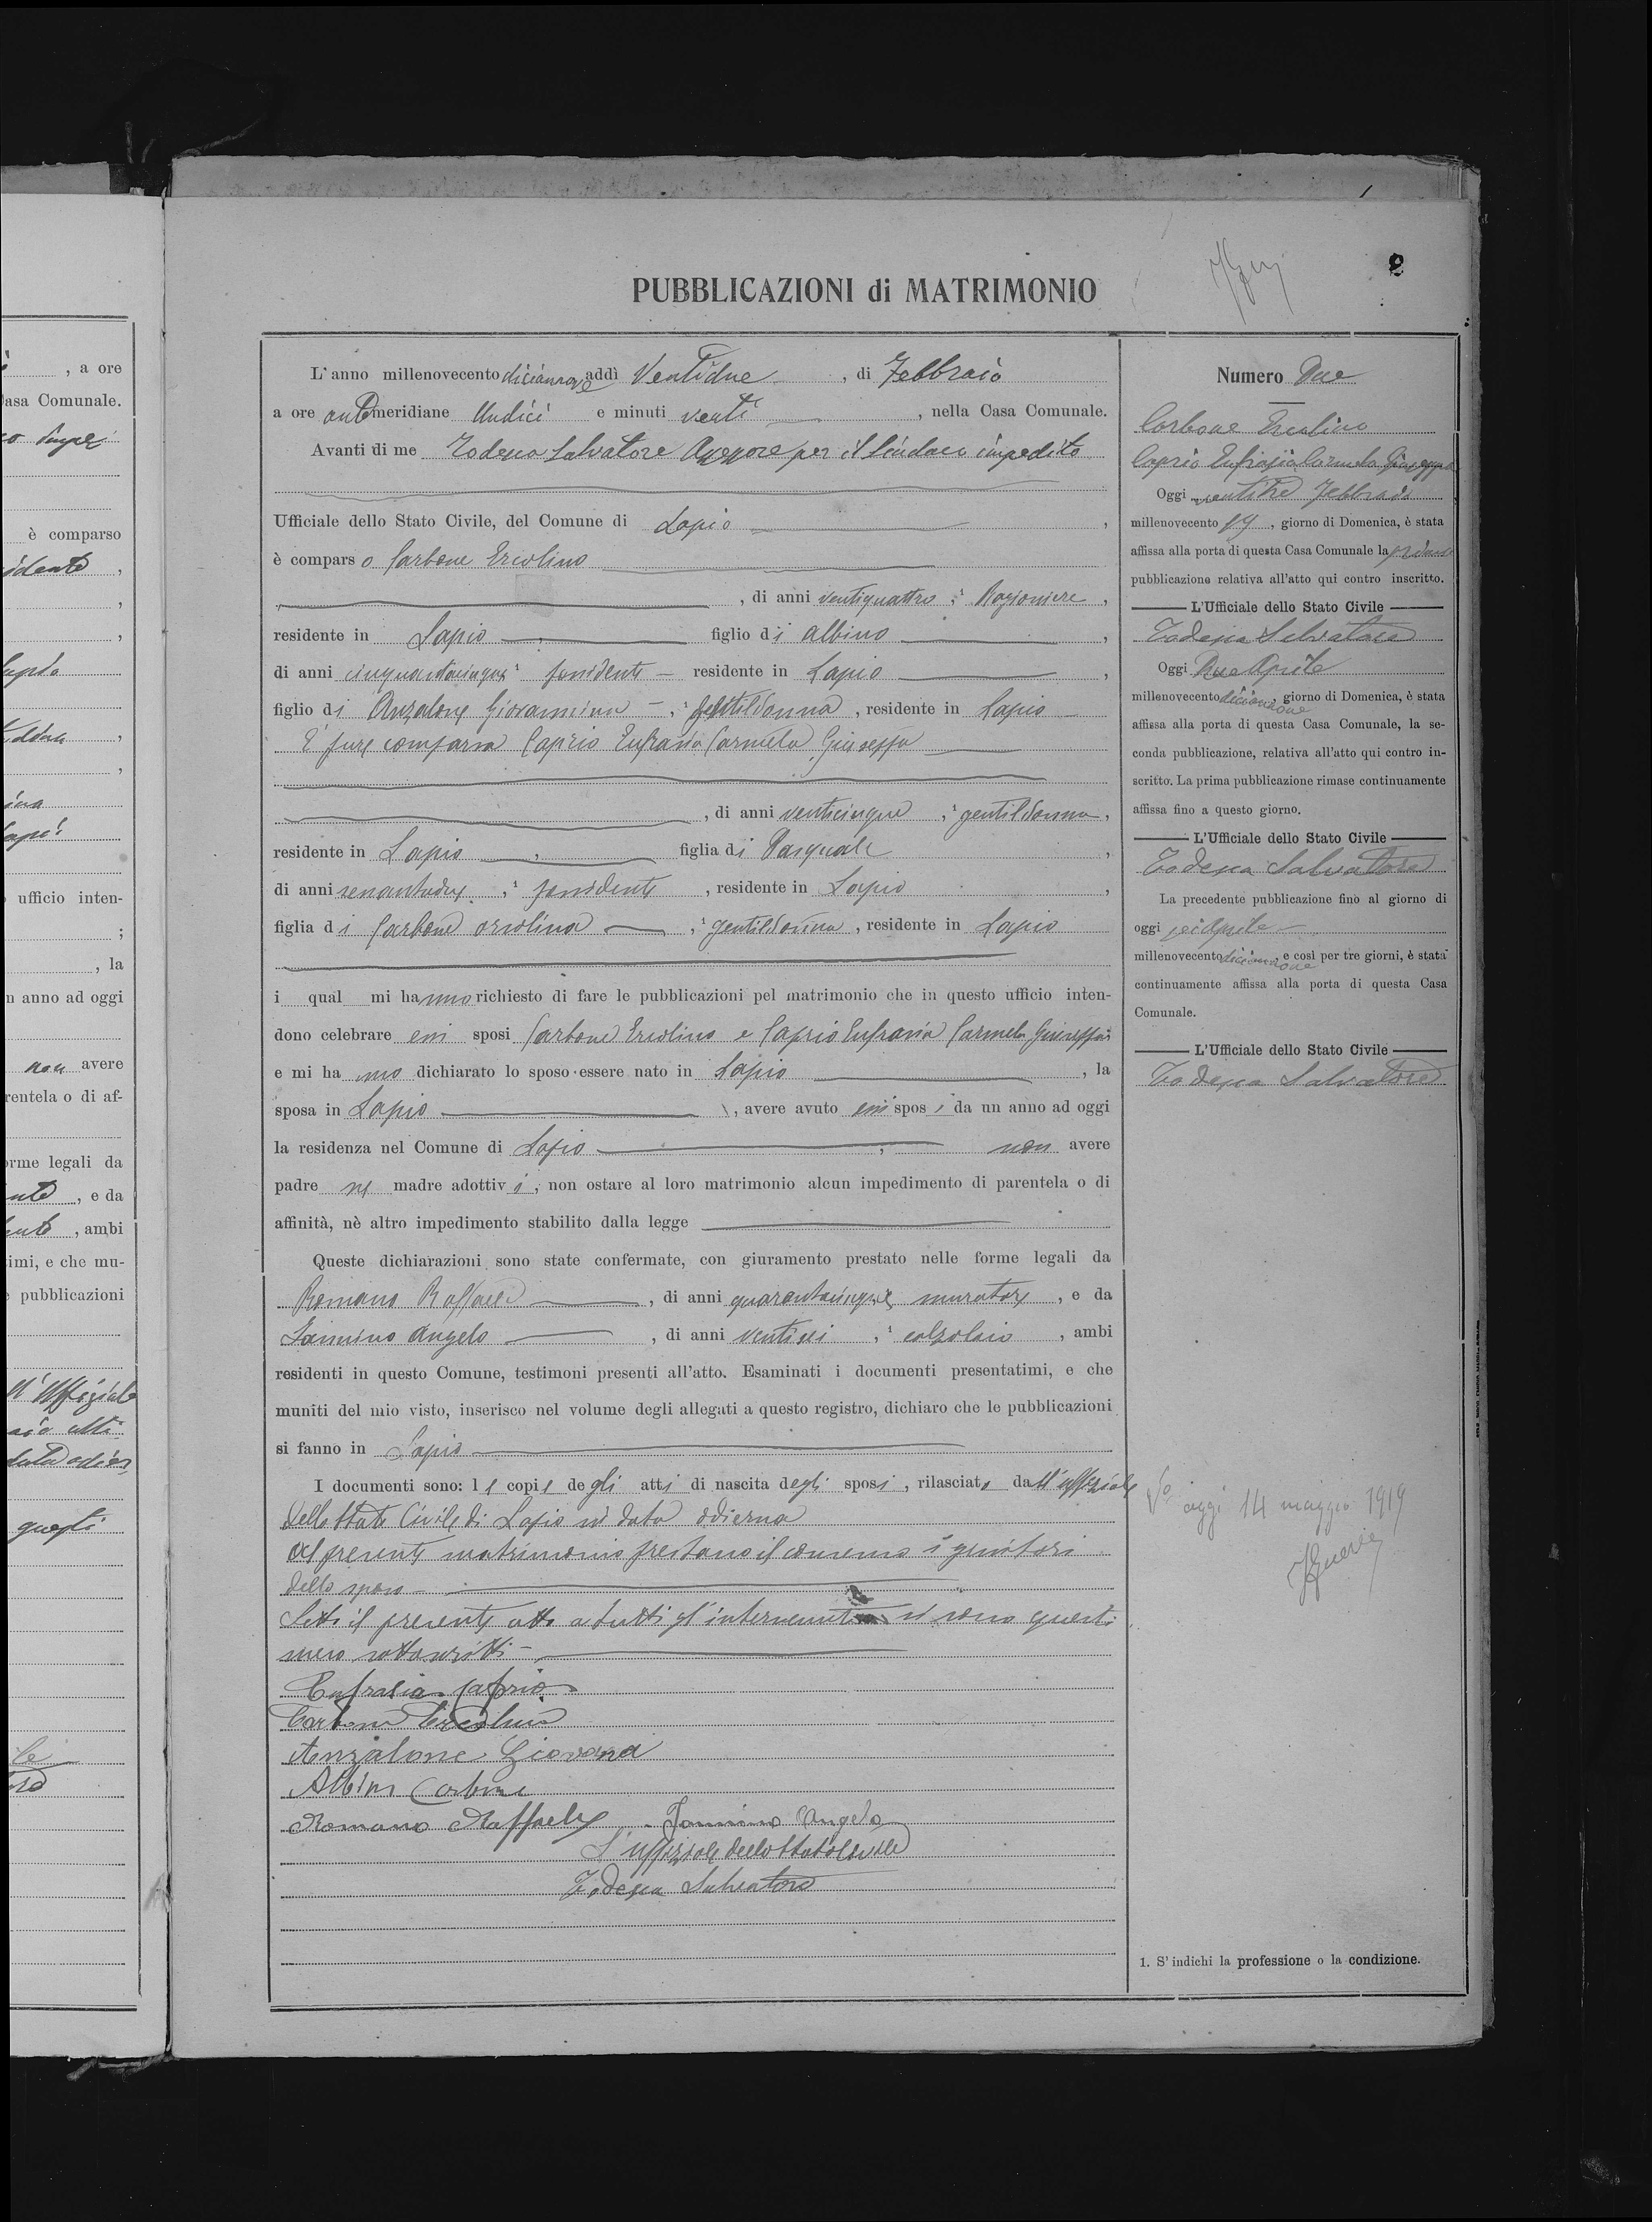 PUBBLICAZIONI di MATRIMONIO
2
L'anno millenovecento diciannove addì Ventidue, di Febbraio
a ore antimeridiane Undici e minuti venti, nella Casa Comunale.
Avanti di me Todesca Salvatore Assessore per il Sindaco impedito
Ufficiale dello Stato Civile, del Comune di Lapio,
è comparso Carbone Ercolino
, di anni ventiquattro, ¹ Ragioniere,
residente in Lapio figlio di Albino,
di anni cinquantacinque ¹ possidente residente in Lapio,
figlio di Anzalone Giovannina, ¹ gentildonna, residente in Lapio
È pure comparsa Caprio Eufrasia Carmela Giuseppa
, di anni venticinque, ¹ gentildonna,
residente in Lapio, figlia di Pasquale,
di anni sessantadue, ¹ possidente, residente in Lapio,
figlia di Carbone Orsolina, ¹ gentildonna, residente in Lapio
i qual mi hanno richiesto di fare le pubblicazioni pel matrimonio che in questo ufficio inten-
dono celebrare essi sposi Carbone Ercolino e Caprio Eufrasia Carmela Giuseppa
e mi hanno dichiarato lo sposo essere nato in Lapio, la
sposa in Lapio, avere avuto essi sposi da un anno ad oggi
la residenza nel Comune di Lapio, non avere
padre ne madre adottivi, non ostare al loro matrimonio alcun impedimento di parentela o di
affinità, nè altro impedimento stabilito dalla legge
Queste dichiarazioni sono state confermate, con giuramento prestato nelle forme legali da
Romano Raffaele, di anni quarantacinque, muratore, e da
Iannino Angelo, di anni ventisei, ¹ calzolaio, ambi
residenti in questo Comune, testimoni presenti all'atto. Esaminati i documenti presentatimi, e che
muniti del mio visto, inserisco nel volume degli allegati a questo registro, dichiaro che le pubblicazioni
si fanno in Lapio
I documenti sono: le copie degli atti di nascita degli sposi, rilasciato dall'uffiziale
dello Stato Civile di Lapio in data odierna
Al presente matrimonio prestano il consenso i genitori
dello sposo
Letto il presente atto a tutti gl'intervenuti si sono questi
meco sottoscritti
Eufrasia Caprio
Carbone Ercolino
Anzalone Giovanna
Albino Carbone
Romano Raffaele Iannino Angelo
L'uffiziale dello Stato Civile
Todesca Salvatore
Numero Due
Carbone Ercolino
Caprio Eufrasia Carmela Giuseppa
Oggi ventitre Febbraio
millenovecento 19, giorno di Domenica, è stata
affissa alla porta di questa Casa Comunale la prima
pubblicazione relativa all'atto qui contro inscritto.
L'Ufficiale dello Stato Civile
Todesca Salvatore
Oggi Due Aprile
millenovecento diciannove giorno di Domenica, è stata
affissa alla porta di questa Casa Comunale, la se-
conda pubblicazione, relativa all'atto qui contro in-
scritto. La prima pubblicazione rimase continuamente
affissa fino a questo giorno.
L'Ufficiale dello Stato Civile
Todesca Salvatore
La precedente pubblicazione fino al giorno di
oggi sei Aprile
millenovecento diciannove e così per tre giorni, è stata
continuamente affissa alla porta di questa Casa
Comunale.
L'Ufficiale dello Stato Civile
Todesca Salvatore
Vo oggi 14 maggio 1919
1. S'indichi la professione o la condizione.
, a ore
Casa Comunale.
è comparso
ufficio inten-
;
, la
n anno ad oggi
non avere
rentela o di af-
orme legali da
, e da
, ambi
timi, e che mu-
pubblicazioni
questi